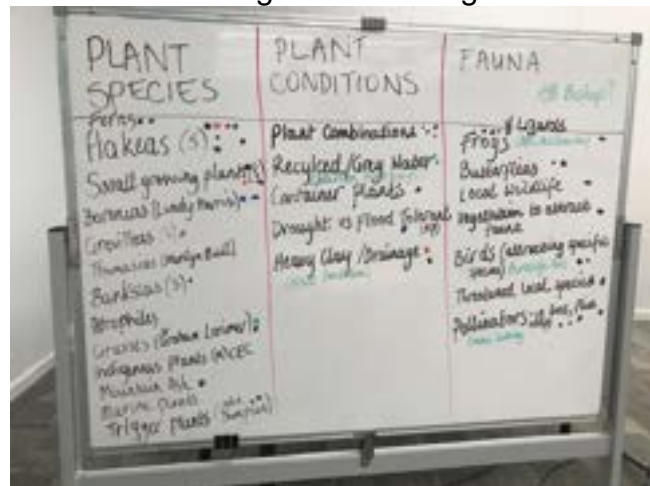 PLANT
SPECIES
Ferns
Hakeas (S)
Small growing plants
Boronias (Lindy Harris)
Grevilleas
Thomasias (Marilyn Bull)
Banksias (S)
Petrophiles
Grasses (Graham Lorimer)
Indigenous Plants
Mountain Ash
Marine Plants
Trigger Plants
PLANT
CONDITIONS
Plant Combinations
Recylced/Grey Water
Container Plants
Drought vs Flood Tolerant
Heavy Clay/Drainage
FAUNA
Frogs & Lizards
Butterflies
Local Wildlife
Vegetation to attract
Fauna
Birds (attracting specific
species)
Threatened local species
Pollinators